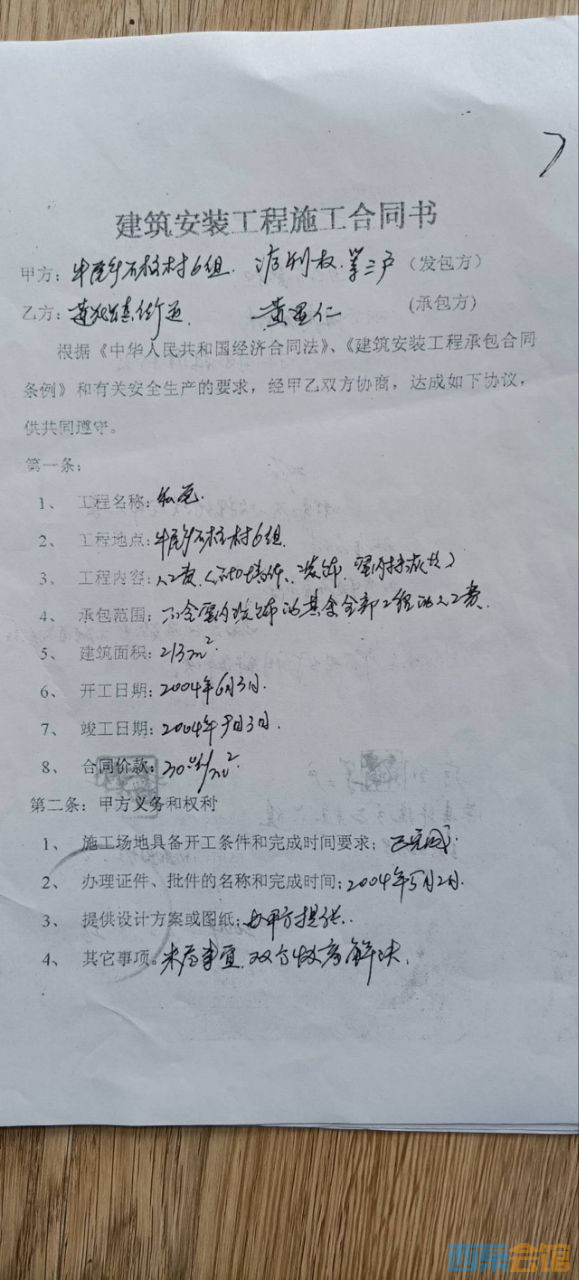 建筑安装工程施工合同书
甲方: 牛尾乡石柱村6组. 第三户 (发包方)
乙方: (承包方)
根据《中华人民共和国经济合同法》、《建筑安装工程承包合同
条例》和有关安全生产的要求，经甲乙双方协商，达成如下协议，
供共同遵守。
第一条:
1、 工程名称:
2、 工程地点: 牛尾乡石柱村6组.
3、 工程内容: 人工费
4、 承包范围: 不含室内装饰的其余全部工程的人工费.
5、 建筑面积: 213m².
6、 开工日期: 2004年6月3日.
7、 竣工日期: 2004年9月3日.
8、 合同价款: /m²
第二条: 甲方义务和权利
1、 施工场地具备开工条件和完成时间要求: 已完成.
2、 办理证件、批件的名称和完成时间: 2004年5月2日.
3、 提供设计方案或图纸: 由甲方提供.
4、 其它事项。未尽事宜. 双方协商解决.
西祠会馆